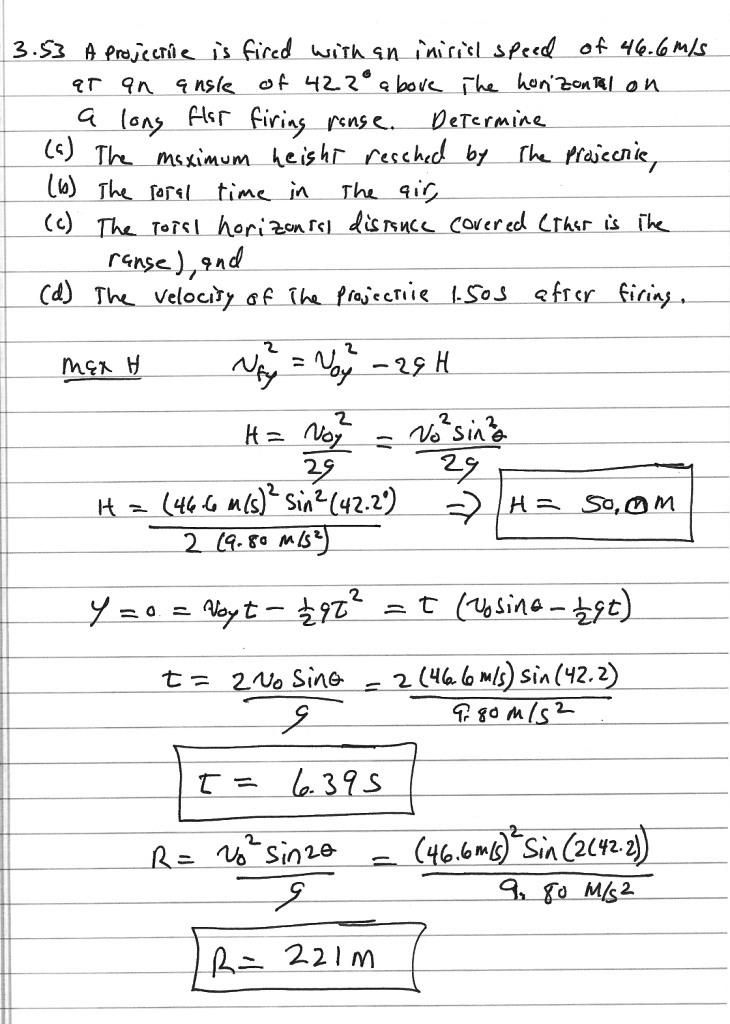 3.53 A projectile is fired with an initial speed of 46.6 m/s
at an angle of 42.2° above the horizontal on
a long flat firing range. Determine
(a) The maximum height reached by the projectile,
(b) The total time in the air,
(c) The total horizontal distance covered (that is the
range), and
(d) The velocity of the projectile 1.50s after firing.
max H v_fy² = v_oy² - 2gH
H = v_oy²/2g = v_o² sin²θ/2g
H = (46.6 m/s)² sin²(42.2°)/2 (9.80 m/s²) ⇒ H = 50.0 m
y = 0 = v_oy t - ½gt² = t (v_o sinθ - ½gt)
t = 2 v_o sinθ/g = 2 (46.6 m/s) sin(42.2)/9.80 m/s²
t = 6.39 s
R = v_o² sin2θ/g = (46.6m/s)² sin(2(42.2))/9.80 m/s²
R = 221 m